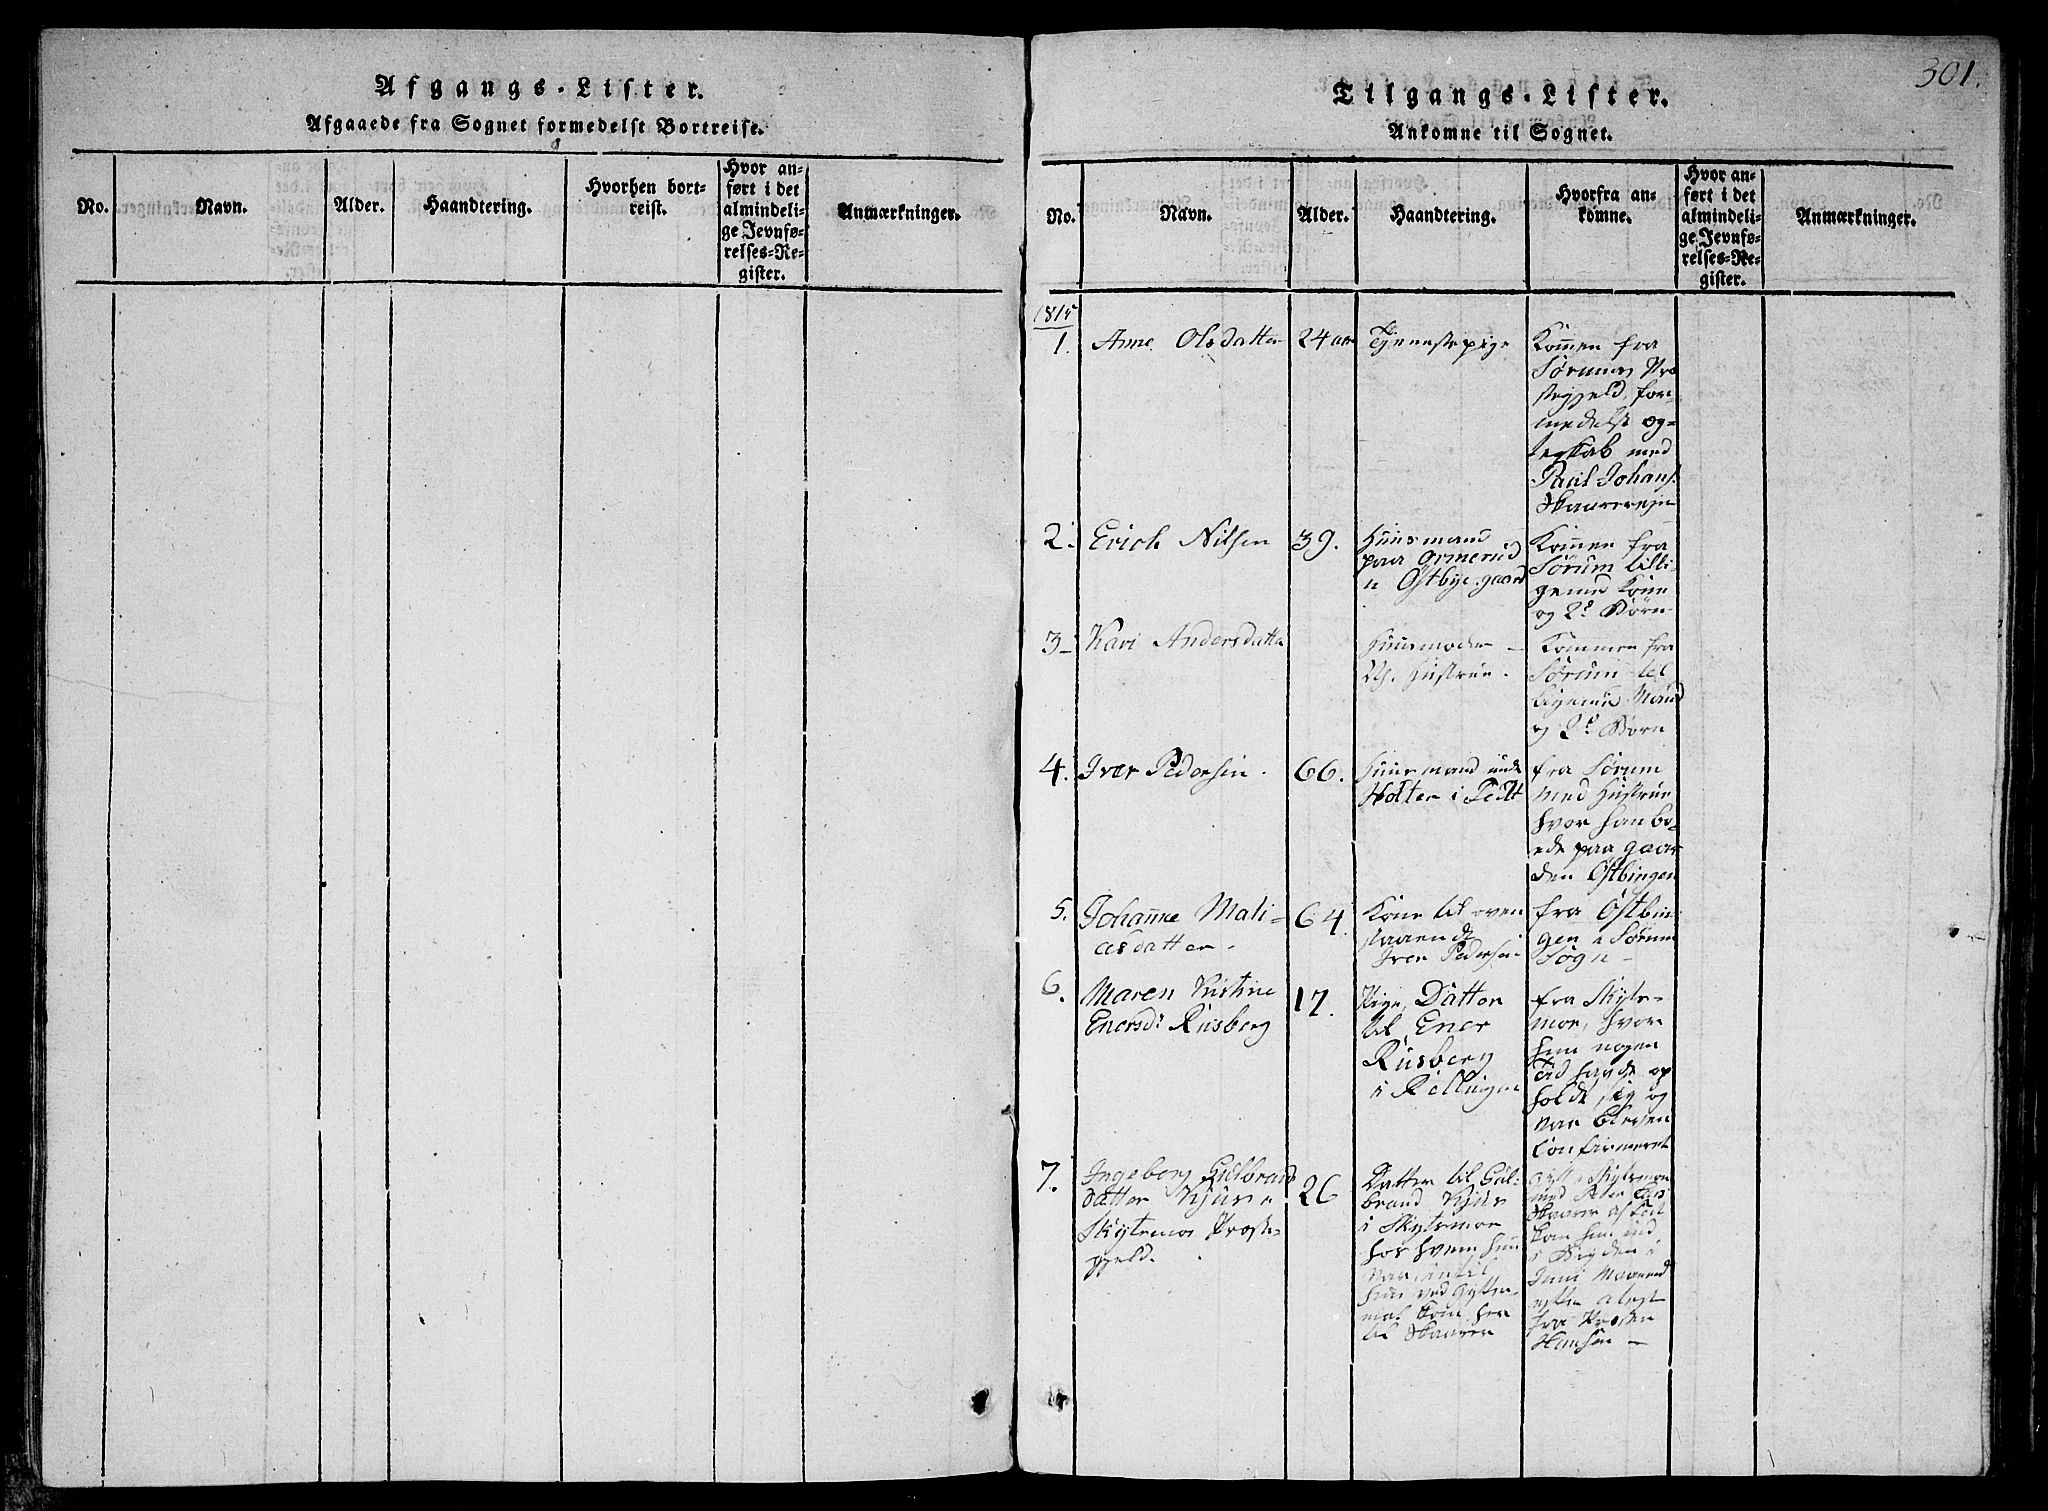 Afgangs-Lister.
Afgaaede fra Sognet formedelst Bortreise.
No.
Navn.
Alder.
Haandtering.
Hvorhen bort-
reist.
Hvor an-
ført i det
almindeli-
ge Jevnfø-
relses-Re-
gister.
Anmærkninger.
301.
Tilgangs-Lister.
Ankomne til Sognet.
No.
Navn.
Alder.
Haandtering.
Hvorfra an-
komne.
Hvor an-
ført i det
almindeli-
ge Jevnfø-
relses-Re-
gister.
Anmærkninger.
1815
1.
Anne Olsdatter
24 aar
Tjenestepige
Kom̄en fra
Sørums Præ
stegjeld, for-
medelst Eg-
teskab med
Paul Johans.
Skaarereje
2.
Erich Nilsen
39.
Huusmand
paa Ormerud
u Østbye gaard
Kom̄en fra
Sørum tilli-
gemed Kone
og 2de Børn
3-
Kari Andersdatter
Huusmoder -
N. Hustrue.
Kommen fra
Sørum til
ligemed Mand
og 2de Børn
4.
Iver Pedersen.
66.
Huusmand unde
Holter i Feilt
fra Sørum
med Hustrue
hvor han bo-
ede paa gaar
den Østbingen
5.
Johan̄ne Mati-
asdatter.
64.
Kone til oven
staaende
Iver Pedersen
fra Østbin
gen i Sørum
Sogn -
6.
Maren Kristine
Enersdr Rusberg
17.
Pige, Datter
til Ener
Rusberg
i Rellingen
fra Skyts-
moe, hvor
hun nogen
Tid havde op
holdt sig og
var bleven
Confirmeret
7.
Ingeborg Gulbrand
datter Kjus i
Skytsmoe Præste
gjeld.
26
Datter til Gul-
brand Kjus
i Skytsmoe
hos hvem hun
var indtil
hun ved Gifter-
mal kom her
til Skaarer
Gift i Skytsmoe
med
Skaarer af Feil
kom hun ind
i Bygden i
Juni Maaned
efter Atest
fra Præsten
Hansen -